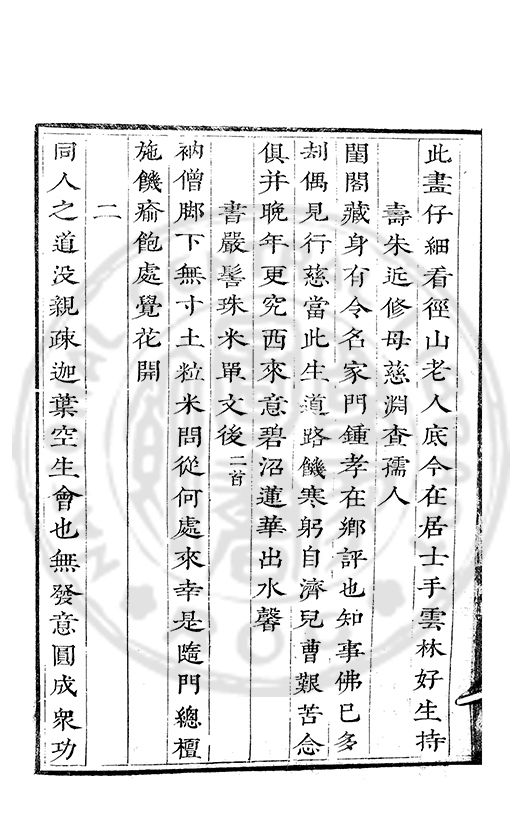 此畫仔細看徑山老人底今在居士手雲林好生持
壽朱近修母慈淵查孺人
閨閣藏身有令名家門鍾孝在鄉評也知事佛已多
刦偶見行慈當此生道路饑寒躬自濟兒曹艱苦念
俱并晚年更究西來意碧沼蓮華出水馨
書嚴髻珠米單文後二首
衲僧脚下無寸土粒米問從何處來幸是隨門總檀
施饑瘉飽處覺花開
二
同人之道没親疎迦葉空生會也無發意圓成衆功